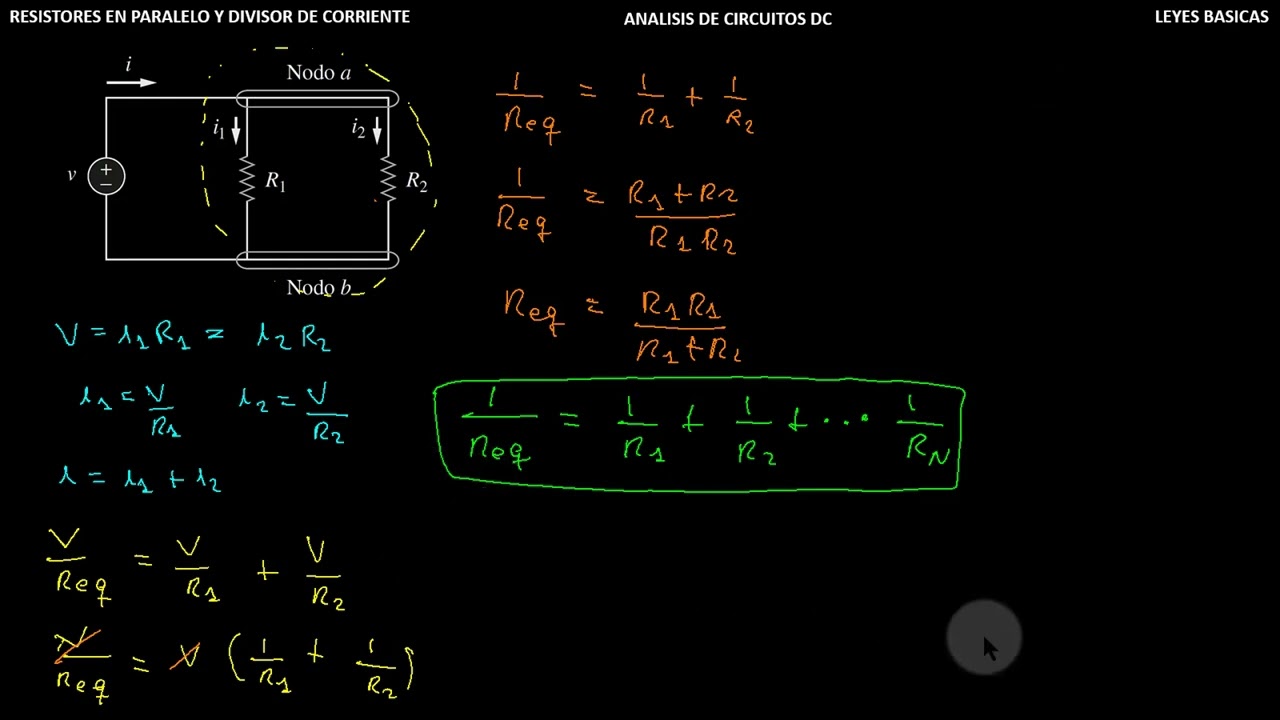 RESISTORES EN PARALELO Y DIVISOR DE CORRIENTE
ANALISIS DE CIRCUITOS DC
LEYES BASICAS
i
Nodo a
i₁
i₂
v
+
−
R₁
R₂
Nodo b
V = i₁R₁ = i₂R₂
i₁ = V/R₁
i₂ = V/R₂
i = i₁ + i₂
V/Req = V/R₁ + V/R₂
V/Req = V (1/R₁ + 1/R₂)
1/Req = 1/R₁ + 1/R₂
1/Req = R₁ + R₂/R₁R₂
Req = R₁R₁/R₁ + R₂
1/Req = 1/R₁ + 1/R₂ + ... 1/R_N